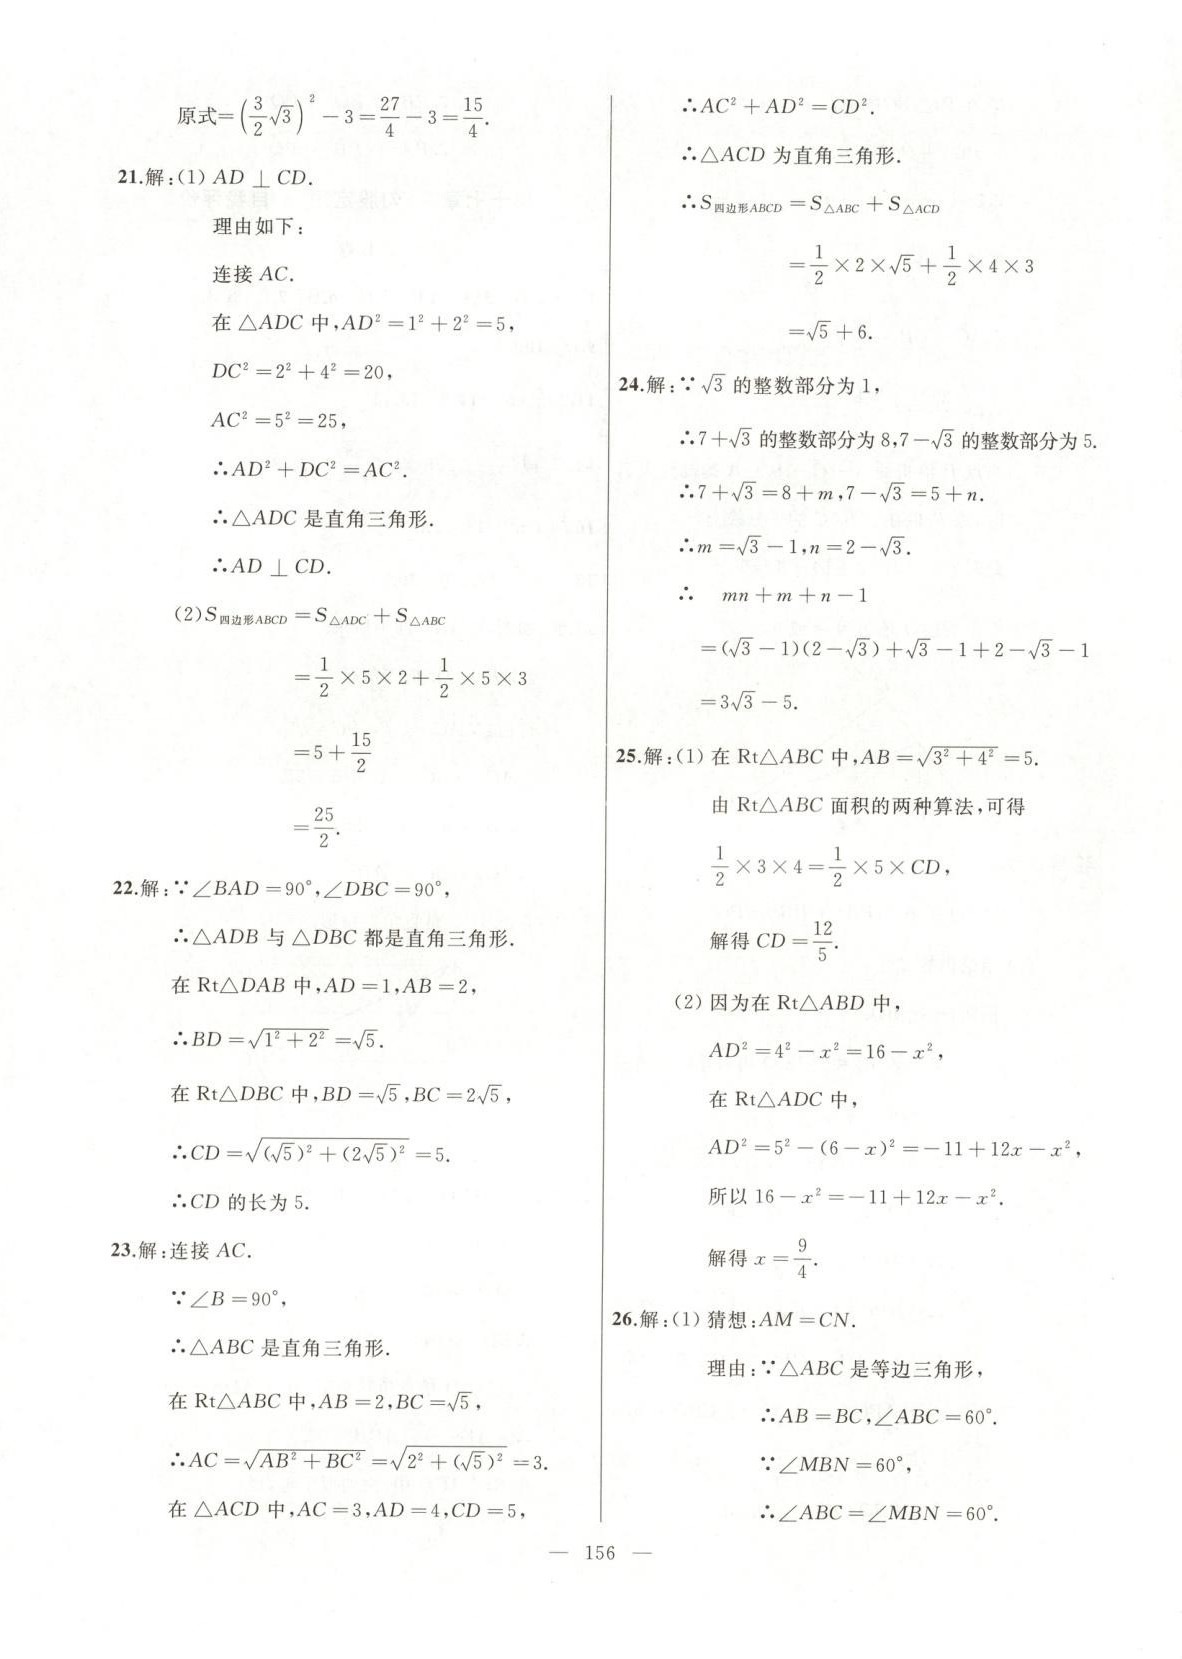 原式=(3/2√3)²-3=27/4-3=15/4.
21.解:(1) AD⊥CD.
理由如下:
连接 AC.
在 △ADC 中,AD²=1²+2²=5,
DC²=2²+4²=20,
AC²=5²=25,
∴AD²+DC²=AC².
∴△ADC 是直角三角形.
∴AD⊥CD.
(2)S四边形ABCD=S△ADC+S△ABC
=1/2×5×2+1/2×5×3
=5+15/2
=25/2.
22.解:∵∠BAD=90°,∠DBC=90°,
∴△ADB 与 △DBC 都是直角三角形.
在 Rt△DAB 中,AD=1,AB=2,
∴BD=√(1²+2²)=√5.
在 Rt△DBC 中,BD=√5,BC=2√5,
∴CD=√((√5)²+(2√5)²)=5.
∴CD 的长为 5.
23.解:连接 AC.
∵∠B=90°,
∴△ABC 是直角三角形.
在 Rt△ABC 中,AB=2,BC=√5,
∴AC=√(AB²+BC²)=√(2²+(√5)²)=3.
在 △ACD 中,AC=3,AD=4,CD=5,
∴AC²+AD²=CD².
∴△ACD 为直角三角形.
∴S四边形ABCD=S△ABC+S△ACD
=1/2×2×√5+1/2×4×3
=√5+6.
24.解:∵√3 的整数部分为 1,
∴7+√3 的整数部分为 8,7-√3 的整数部分为 5.
∴7+√3=8+m,7-√3=5+n.
∴m=√3-1,n=2-√3.
∴ mn+m+n-1
=(√3-1)(2-√3)+√3-1+2-√3-1
=3√3-5.
25.解:(1) 在 Rt△ABC 中,AB=√(3²+4²)=5.
由 Rt△ABC 面积的两种算法,可得
1/2×3×4=1/2×5×CD,
解得 CD=12/5.
(2) 因为在 Rt△ABD 中,
AD²=4²-x²=16-x²,
在 Rt△ADC 中,
AD²=5²-(6-x)²=-11+12x-x²,
所以 16-x²=-11+12x-x².
解得 x=9/4.
26.解:(1) 猜想:AM=CN.
理由:∵△ABC 是等边三角形,
∴AB=BC,∠ABC=60°.
∵∠MBN=60°,
∴∠ABC=∠MBN=60°.
— 156 —